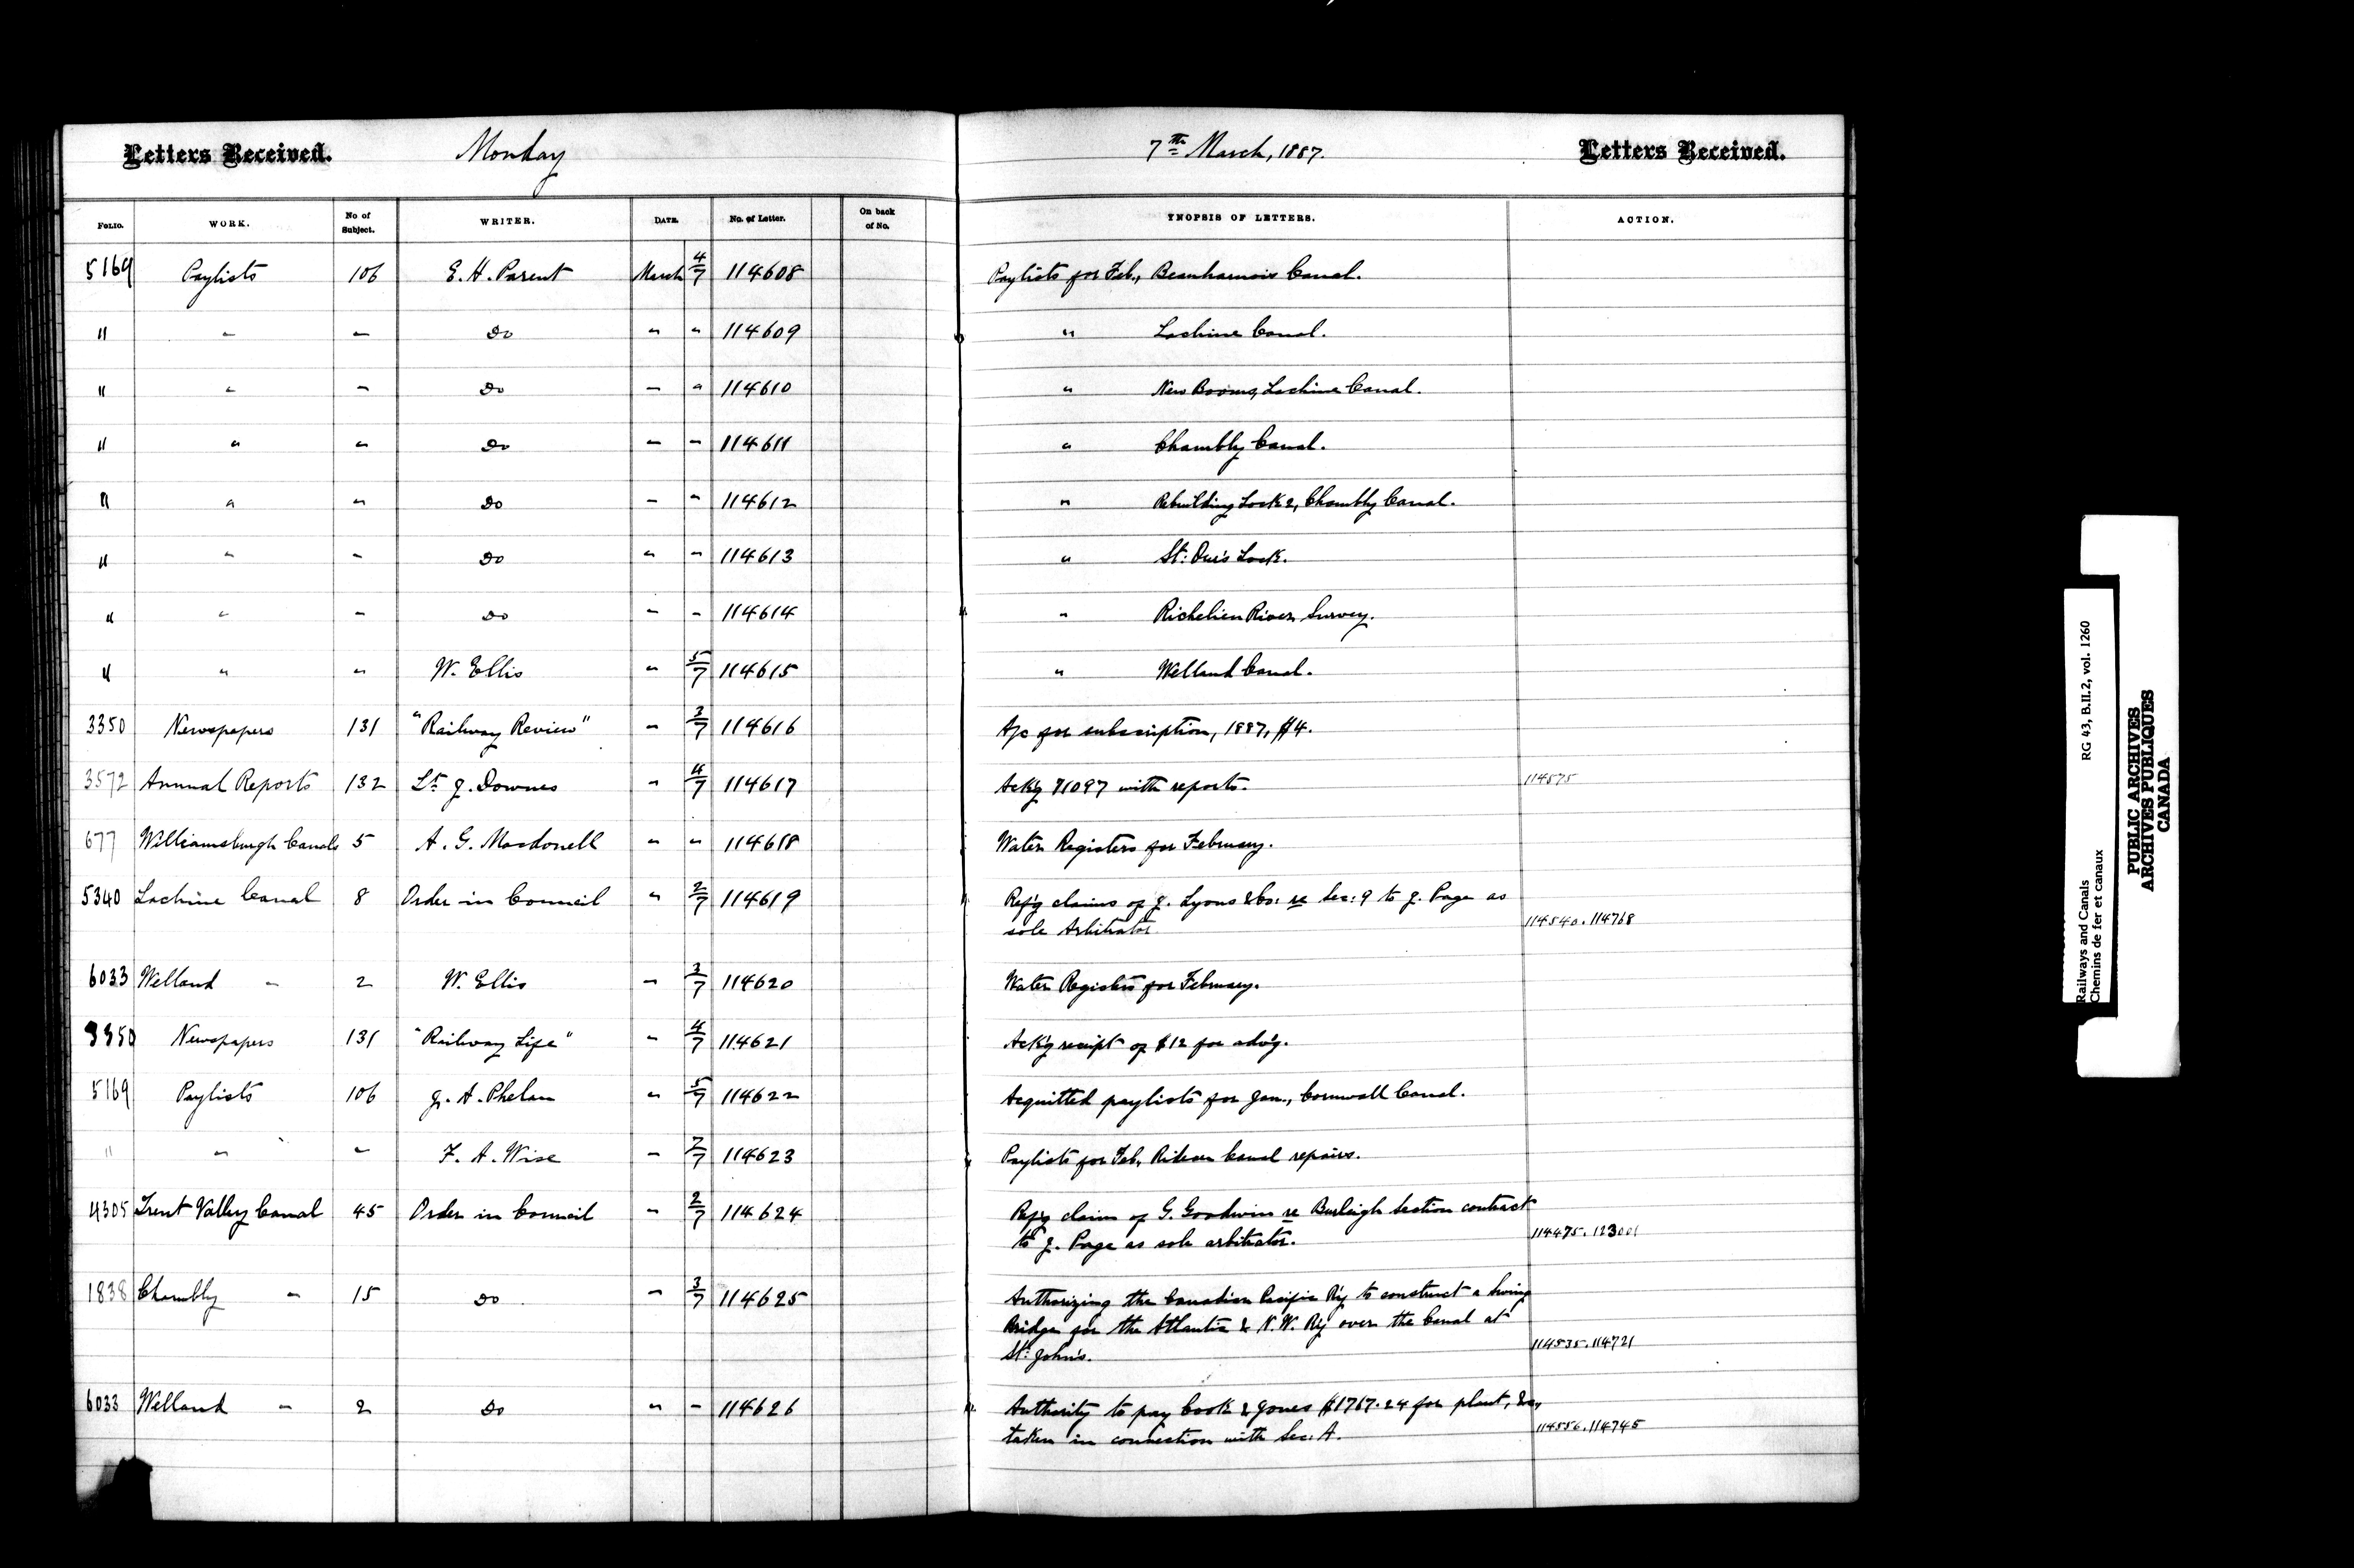 Letters Received. Monday 7th March, 1887. Letters Received.
FOLIO. WORK. No of Subject. WRITER. DATE. No. of Letter. On back of No. YNOPSIS OF LETTERS. ACTION.
5169 Paylists 106 E. H. Parent March 4/7 114608 Paylists for Feb., Beauharnois Canal.
" " " Do " " 114609 " Lachine Canal.
" " " Do " " 114610 " New Booms, Lachine Canal.
" " " Do " " 114611 " Chambly Canal.
" " " Do " " 114612 " Rebuilding Lock 2, Chambly Canal.
" " " Do " " 114613 " St: Our's Lock.
" " " Do " " 114614 " Richelieu River Survey.
" " " W. Ellis " 5/7 114615 " Welland Canal.
3350 Newspapers 131 "Railway Review" " 3/7 114616 A/c for subscription, 1887, $4.
3572 Annual Reports 132 Lt J. Downes " 4/7 114617 Ack'g 71097 with reports. 114575
677 Williamsburgh Canals 5 A. G. Macdonell " " 114618 Water Registers for February.
5340 Lachine Canal 8 Order in Council " 2/7 114619 Ref'g claims of J. Lyons & Co: re Sec: 9 to J. Page as
sole Arbitrator 114540. 114768
6033 Welland " 2 W. Ellis " 3/7 114620 Water Registers for February.
3350 Newspapers 131 "Railway Life" " 4/7 114621 Ack'g receipt of $12 for adv'g.
5169 Paylists 106 J. A. Phelan " 5/7 114622 Acquitted paylists for Jan., Cornwall Canal.
" " " F. A. Wise " 7/7 114623 Paylists for Feb, Rideau Canal repairs.
4305 Trent Valley Canal 45 Order in Council " 2/7 114624 Ref'g claim of G. Goodwin re Burleigh Section contract
to J. Page as sole arbitrator. 114475. 123001
1838 Chambly " 15 Do " 3/7 114625 Authorizing the Canadian Pacific R'y to construct a Swing
Bridge for the Atlantic & N. W. R'y over the Canal at
St: John's. 114535. 114721
6033 Welland " 2 Do " " 114626 Authority to pay Cook & Jones $1767.24 for plant, &c,
taken in connection with Sec: A. 114556. 114745
Railways and Canals RG 43, B.II.2, vol. 1260
Chemins de fer et canaux
PUBLIC ARCHIVES
ARCHIVES PUBLIQUES
CANADA